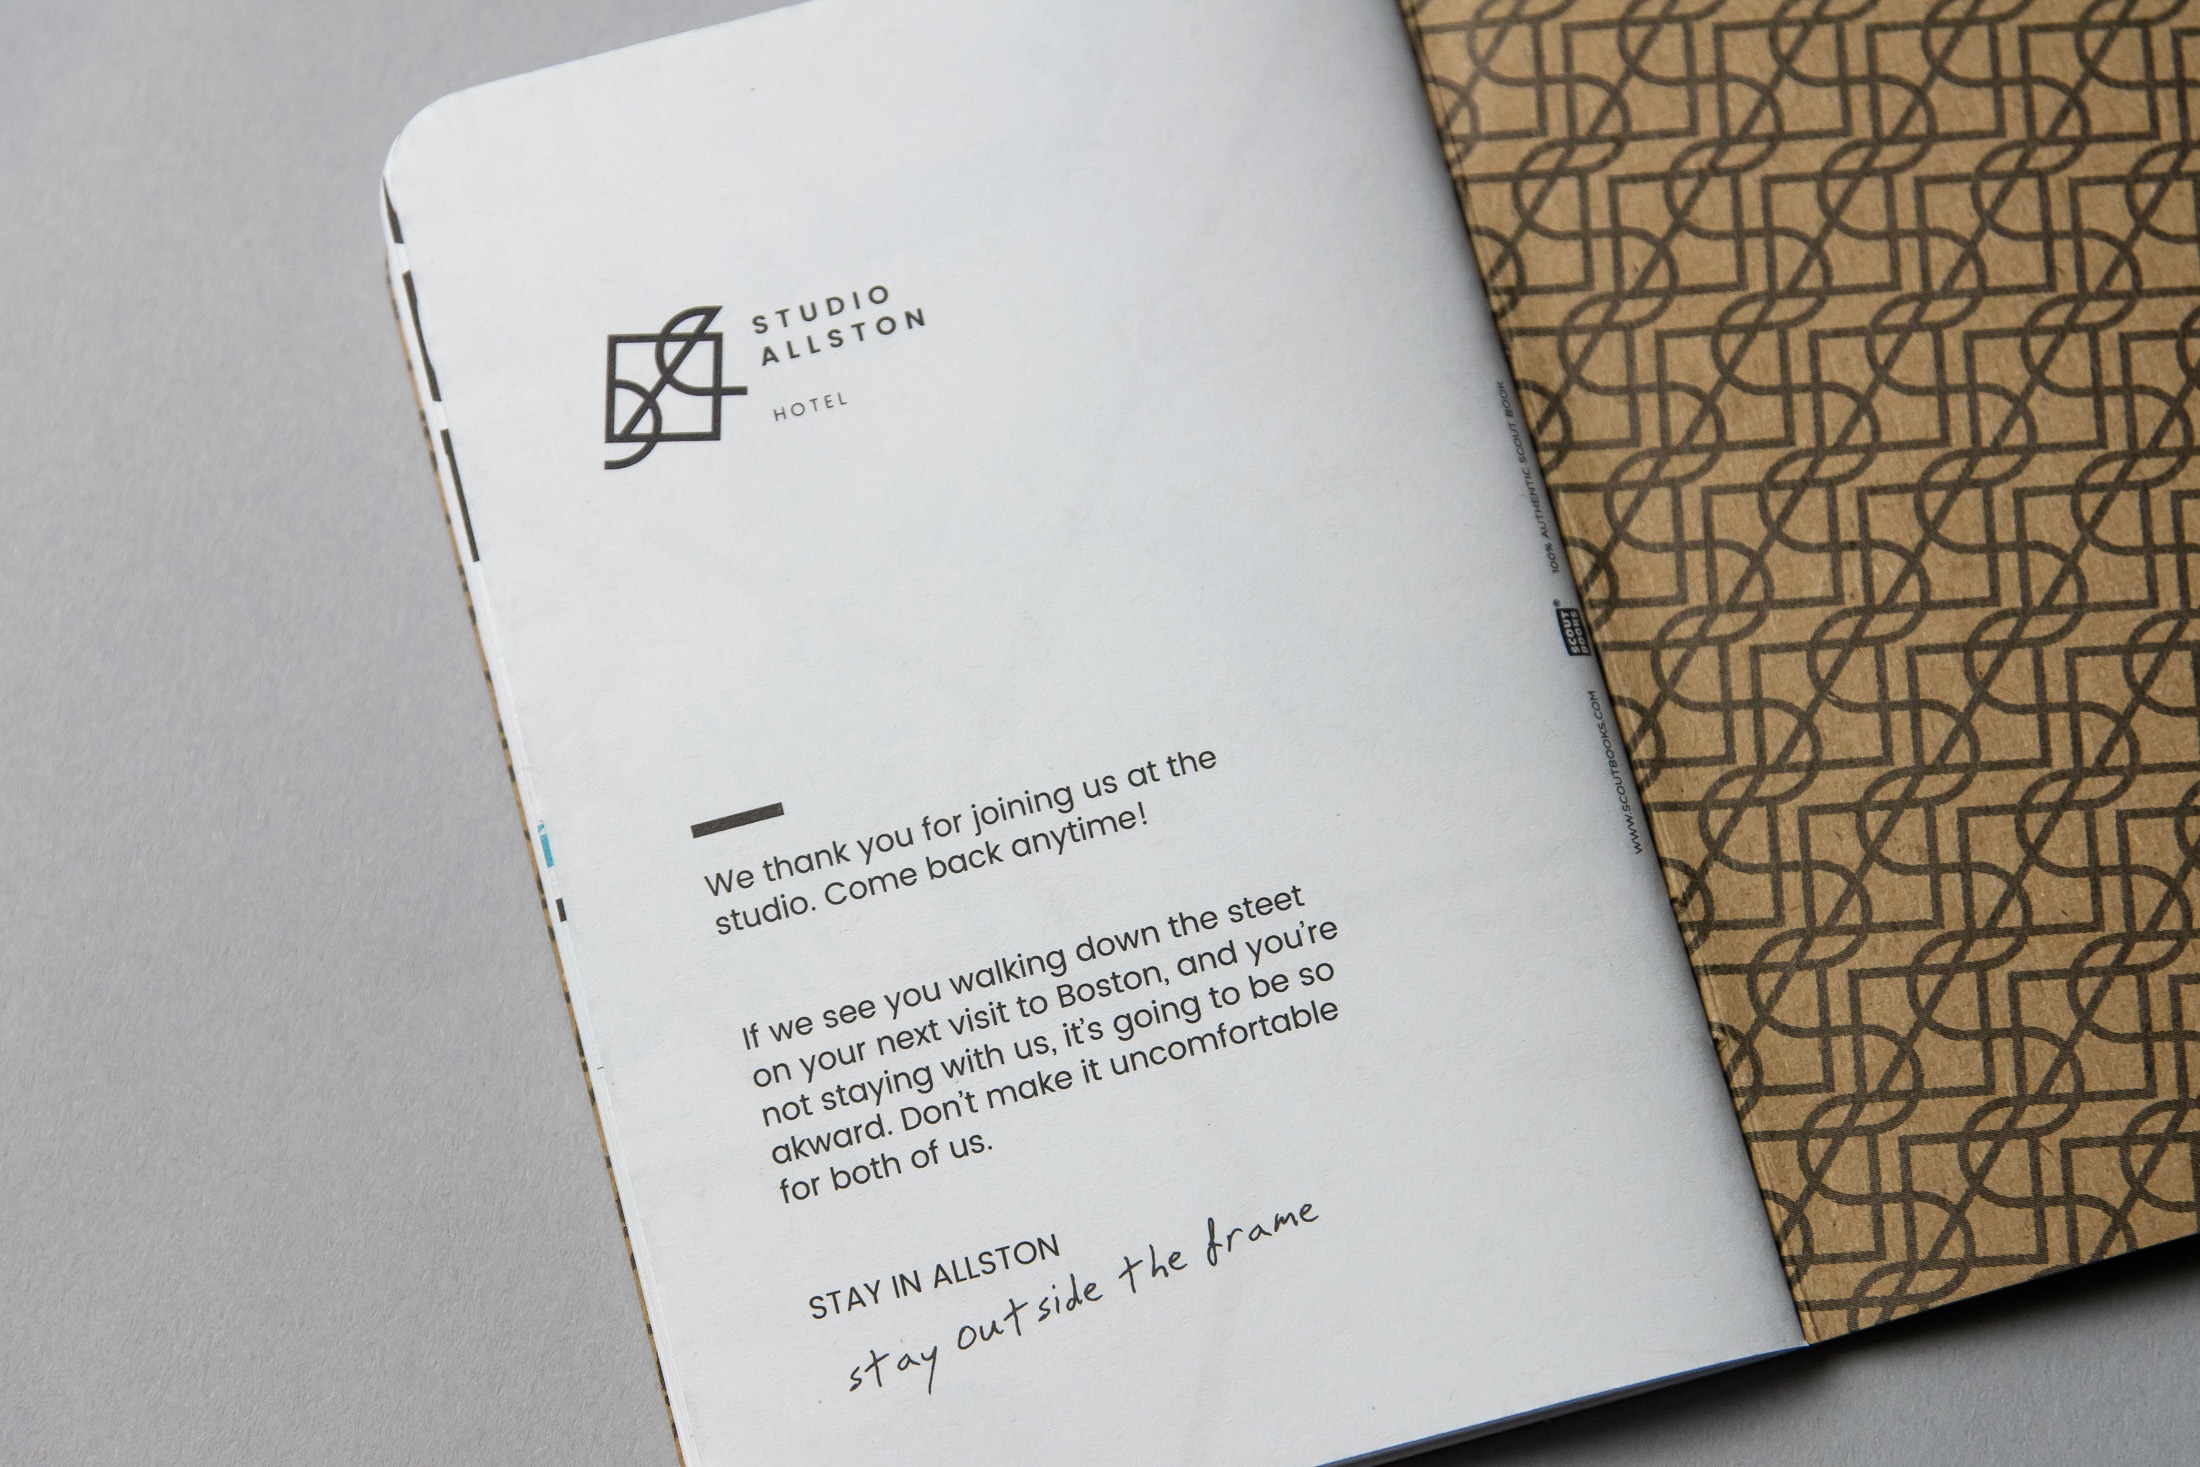 STUDIO
ALLSTON
HOTEL
We thank you for joining us at the
studio. Come back anytime!
If we see you walking down the steet
on your next visit to Boston, and you're
not staying with us, it's going to be so
akward. Don't make it uncomfortable
for both of us.
STAY IN ALLSTON
stay outside the frame
100% AUTHENTIC SCOUT BOOK
SCOUT
BOOKS®
WWW.SCOUTBOOKS.COM